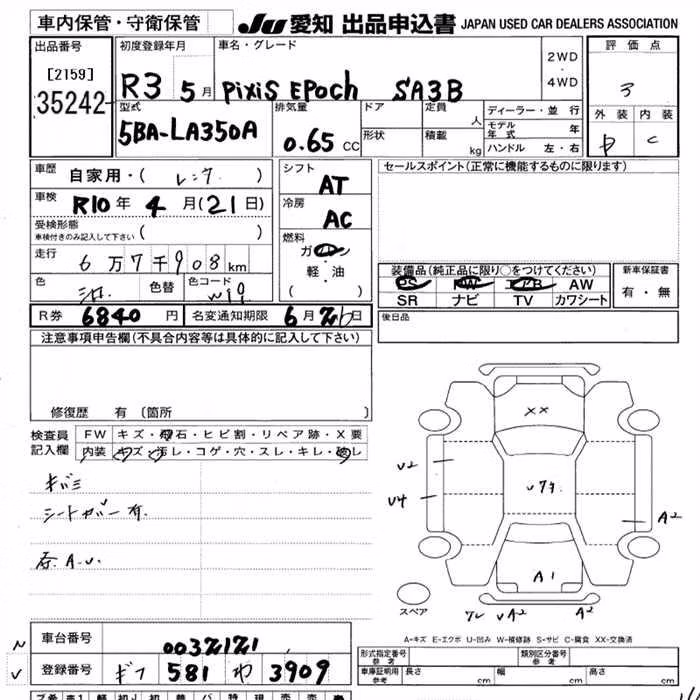 車内保管・守衛保管
JU 愛知 出品申込書 JAPAN USED CAR DEALERS ASSOCIATION
出品番号
[2159]
35242
初度登録年月
R3 5月
車名・グレード
PixiS EPoch SA3B
2WD
・
4WD
評価点
3
外装 内装
C
型式
5BA-LA350A
排気量
0.65 CC
ドア
形状
定員 人
積載 kg
ディーラー・並行
モデル年式 年
ハンドル 左・右
車歴
自家用・( レンタ )
車検
R10年 4月(21日)
受検形態
車検付きのみ記入して下さい ( )
走行
6万7千908km
色
シロ
色替
色コード
W19
シフト
AT
冷房
AC
燃料
ガソリン
・
軽・油
( )
セールスポイント(正常に機能するものに限ります)
装備品(純正品に限り○をつけてください)
PS PW エアB AW
SR ナビ TV カワシート
新車保証書
有・無
R券 6840円
名変通知期限 6月26日
後日品
注意事項申告欄(不具合内容等は具体的に記入して下さい)
修復歴 有(箇所 )
検査員
記入欄
FW キズ・飛石・ヒビ割・リペア跡・X要
内装 キズ・汚レ・コゲ・穴・スレ・キレ・破レ
キバミ
シートカバー有.
A.U.
XX
U2
U4
A2
A1
UA2
A2
スペア
A-キズ E-エクボ U-凹み W-補修跡 S-サビ C-腐食 XX-交換済
車台番号
0032121
登録番号
ギフ 581 わ 3909
形式指定番号
参考
類別区分番号
参考
車庫証明用
参考
長さ cm
幅 cm
高さ cm